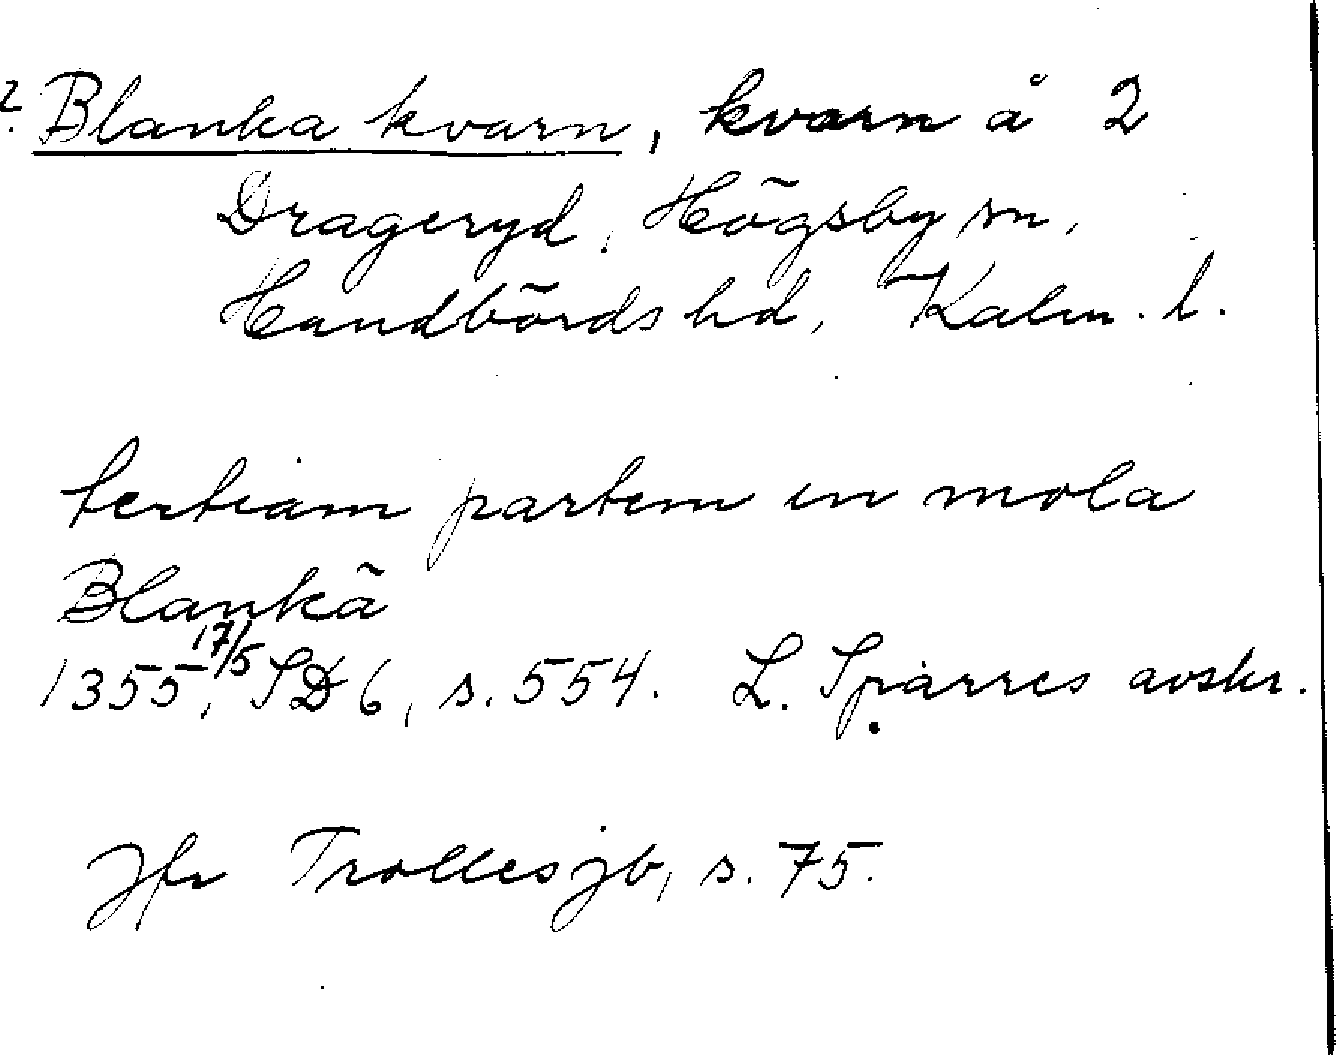 ?. Blanka kvarn, kvarn å 2
Drageryd, Högsby sn,
Handbörds hd, Kalm. l.
tertiam partem in mola
Blankā
1355 17/5, SD 6, s. 554. L. Sparres avskr.
Jfr Trolles jb, s. 75.